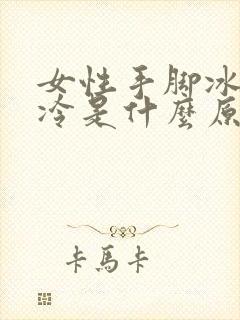 女性手脚冰
冷是什麼原
卡馬卡